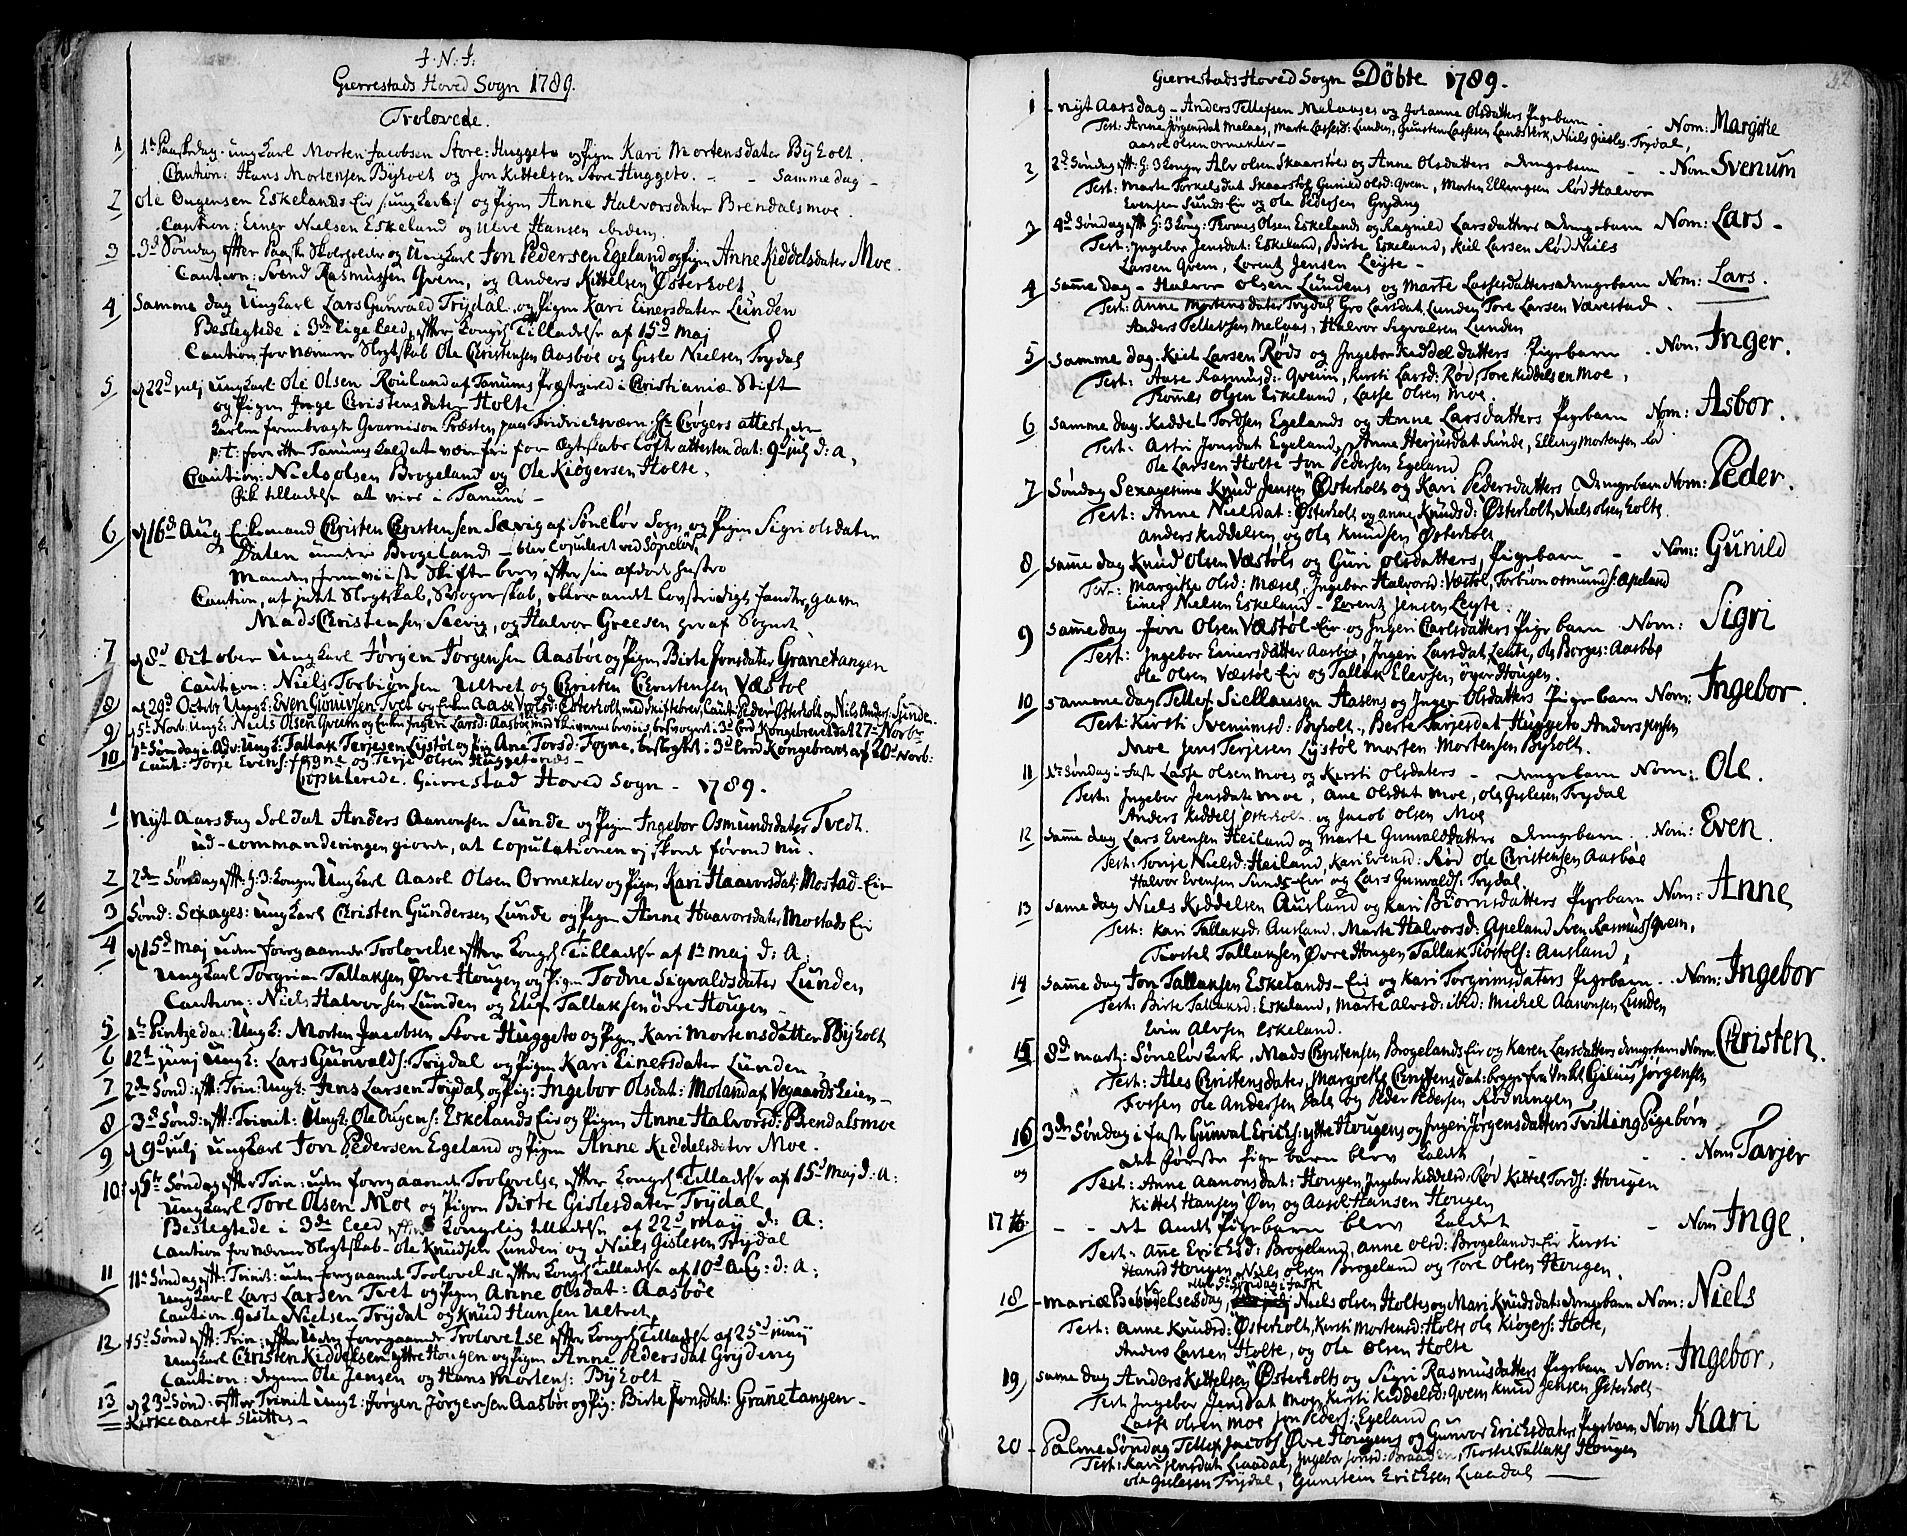 J. N. J.
Gierrestads Hoved Sogn 1789.
Trolovede.
1 1te Paaskedag. ungkarl Morten Jacobsen Store: Huggeto og Pigen Kari Mortensdater Byholt.
Caution: Hans Mortensen Byholt og Jon Kittelsen Store Huggeto. - - Samme dag -
2 Ole Ougensen Eskelands Eir ungkarl og Pigen Anne Halvorsdater Brendalsmoe.
Caution: Einer Nielsen Eskeland og Ulve Hansen ibidem.
3 3d Søndag efter Paask Skoleholder og Ungkarl Jon Pedersen Egeland og Pigen Anne Kiddelsdater Moe.
Caution: Svend Rasmussen Qvem, og Anders Kittelsen Østerholt
4 Samme dag Ungkarl Lars Gunvald Trydal og Pigen Kari Einersdater Lunden
Beslegtede i 3die lige Leed, efter Kongel Tilladelse af 15d Maj
Caution for nærmere Slegtskab Ole Christensen Aasbøe og Gisle Nielsen Trydal
5 d 22d julj ungkarl Ole Olsen Rouland af Tanums Præstegield i Christianiæ Stift
og Pigen Inge Christensdater Holte
Karlen frembragt Guarnison Præsten paa Fridrichsværn Hr Crøgers attest, den
attesten dat: 9d julj d: A,
Caution: Niels Olsen Brogeland og Ole Kiøgersen Holte.
Fik tilladelse at vies i Tanum -
6 d 16d Aug Enkemand Christen Christensen Sævig af Søneløv Sogn og Pigen Sigri Olsdater
Dalen under Brogeland - blev Copuleret ved Søneløv
Manden fremviiste Skifte brev efter sin afdøde hustro
Caution, at intet Slegtskab, Svogerskab, eller andet Lovstridigt fandtes, gave
Mads Christensen Sævig, og Halvor Greesen her af Sognet.
7 d 8d October Ungkarl Jørgen Jørgensen Aasbøe og Pigen Birte Jonsdater Granetangen
Caution: Niels Torbiønsen Ultvet og Christen Christensen Væstøl
8 d 29d Octobr Ungk: Even Gunuvsen Tvet og Enken Aase Olsd: Østerholt, med Skiftebrev, Caut: Peder Østerholt og Niels Anders: Sunde.
9 d 5te Novb. Ungk: Niels Olsen Qveim og Enken Ingeri Larsd: Aasbøe med Skiemme beviis, besvogret i 3d Leed Kongebrevet dat 27d Novbr
10 1te Søndag i Adv: Ungk: Tallak Terjesen Lystøl og Pig Ane Torsd: Fogne, beslegtet i 3d Leed Kongebrevet af 20d Novb:
Caut: Torje Evens: fogne og Terje Olsen Huggetonæs -
Copulerede. Gierrestad Hoved Sogn - 1789.
1 Nyt Aarsdag Soldat Anders Aanonsen Sunde og Pigen Ingebor Osmundsdater Tvedt.
ud-commanderingen giorde, at Copulationen ej skeede førend nu.
2 2den Søndag eft: H: 3: Konger Ungkarl Aasol Olsen Ormekler og Pigen Kari Haavorsdat: Mostad-Eir
3 Sønd: Sexages: ungkarl Christen Gundersen Lunde og Pigen Anne Haavorsdater Mostads Eir
4 d 15d Maj uden foregaaende Trolovelse efter Kongel Tilladelse af 1te maj d: A:
Ungkarl Torgrim Tallaksen Øvre Hougen og Pigen Todne Sigvaldsdater Lunden
Caution: Niels Halvorsen Lunden og Elef Tallaksen øvre Hougen -
5 1te Pintzedag: Ungk: Morten Jacobsen Store Huggeto og Pigen Kari Mortensdatter Byholt
6 12te junj Ungk: Lars Gunvalds: Trydal og Pigen Kari Einersdater Lunden
7 2den Sønd: eft: Trin: Ungk: Jens Larsen Trydal og Pig: Ingebor Olsdat: Moland af Vegaards Leien -
8 3d Sønd: eft: Trinit: Ungk: Ole Ougens: Eskelands Eir og Pigen Anne Halvorsd: Brendalsmoe
9 d 9d julj ungkarl Jon Pedersen Egeland og Pigen Anne Kiddelsdater Moe.
10 d 5te Søndag efter Trin: uden foregaaende Trolovelse, efter Kongel Tilladelse af 15d Maj d: A:
ungkarl Tore Olsen Moe og Pigen Birte Gislesdater Trydal
Beslegtede i 3die Leed efter Kongelig tilladelse af 22d maj d: A:
Caution for nærmer Slegtskab - Ole Knudsen Lunden og Niels Gislesen Trydal
11 11te Søndag eft: Trinit: uden foregaaende Trolovelse efter Kongel Tilladelse af 10d Aug: d: A:
Ungkarl Lars Larsen Tvet og Pigen Anne Olsdat: Aasbøe
Caution Gisle Nielsen Trydal og Knud Hansen Ultvet
12 15d Sønd eft: Trin: efter Uden foregaaende Trolovelse efter Kongel Tilladelse af 25d junij
Ungkarl Christen Kiddelsen ytre Hougen og Pigen Anne Pedersdat Gryding
Caution: Ole Jensen og Hans Mortens: Byholt
13 d 23d Sønd: efter Trinit Ungk: Jørgen Jørgensen Aasbøe og Pig: Birte Jonsdat: Granetangen -
Kirke aaret Sluttes -
Gierrestads Hoved Sogn Döbte 1789.
1 - Nyt Aarsdag - Anders Tellefsen Melaases og Johanne Olsdatters Pigebarn - - Nom: Margitte
Test: Anne Jörgensdat Melaas, Marte Lassesd: Lunden, Gunsten Lassesen Landsverk, Niels Gisles: Trydal,
aasol olsen ormekler -
2 2d Søndag eft: H: 3 Konger Alv olsen Skaarstøles og Anne Olsdatters drengebarn - - Nom Svenum
Test: Marte Torkelsdat Skaarstøl Gunild olsd: Qvem, Morten Ellingsen Rød Halvor
Evensen Sunds Eir og Ole Pedersen Gryding
3 4d Søndag eft H: 3 Kong: Thomes Olsen Eskelands og Ragnild Larsdatters drengebarn Nom: Lars -
Test: Ingebor Jensdat: Eskeland, Birte Eskeland, Kiel Larsen Rød Niels
Larsen Qvem, Lorentz Jensen Leyte -
4 Samme dag - Halvor Olsen Lundens og Marte Lassesdatters drengebarn Nom: Lars.
Test: Anne Mortensdater Trydal Gro Larsdat, Lunden Tore Larsen Værestad.
Anders Tellefsen Melaas, Halvor Sigvalsen Lunden
5 Samme dag. Kiel Larsen Røds og Ingebor Kiddelsdatters Pigebarn - Nom Inger.
Test: Aase Rasmusd: Qveim, Kirsti Larsd: Rød, Tore Kiddelsen Moe,
Thomes Olsen Eskeland, Lasse Olsen Moe.
6 Samme dag. Kiddel Tordsen Egelands og Anne Larsdatters Pigebarn Nom: Asbor.
Test: Astri Jonsdat Egeland, Anne Herjusdat Sunde, Elling Mortensen Rød
Ole Larsen Holte Jon Pedersen Egeland
7 Søndag Sexagesima Knud Jensen Østerholts og Kari Pedersdatters drengebarn Nom: Peder.
Test: Anne Nielsdat: Østerholt og anne Knudsd: Østerholt, Niels olsen holte.
anders Kiddelsen og Ole Knudsen Østerholt
8 Samme dag Knud Olsen Væstøls og Guri olsdatters, Pigebarn - Nom: Gunild
Test: Margitte Olsd: Mæsel, Ingebor Halvorsd: Væstøl, Torbiøn osmunds: Apeland
Einer Nielsen Eskeland - Lorentz Jensen Leyte.
9 Samme dag - Jon Olsen Væstøl-Eir og Ingeri Carlsdatters Pigebarn. Nom: Sigri
Test: Ingebor Einersdatter Aasbøe, Ingeri Larsdat, Leute, ole Borges: Aasbøe
Ole Olsen Væstøl Eir og Tallak Elevsen, øvre Hougen.
10 Samme dag Tellef Siellausen Aasens og Inger Olsdatters Pigebarn Nom: Ingebor.
Test: Kirsti Svenumsd: Byholt, Berte Tarjesdat Huggeto Anders
Moe Jens Terjesen Lystøl Morten Mortensen Byholt.
11 1te Søndag i fast Lasse Olsen Moes og Kirsti Olsdaters - drengebarn Nom: Ole.
Test: Ingebor Jensdat: Moe, Ane Olsdat Moe, Ole Gislesen Trydal
Anders Kiddels Østerholt og Jacob Olsen Moe
12 Samme dag Lars Evensen Heiland og Marte Gunvaldsdatters drengebarn. Nom: Even.
Test: Tonje Nielsd: Heiland, Kari Evensd: Rød Ole Christensen Aasbøe
Halvor Evensen Sunds-Eir, og Lars Gunvalds: Trydal.
13 Same dag Niels Kiddelsen Ausland og Kari Biørnsdatters Pigebarn Nom: Anne
Test: Kari Tallaksd: Ausland, Marte Halvorsd: Apeland Sven Rasmuss Qvem,
Tiostel Tallaksen Øvre Hougen Tallak Tiostols: Ausland,
14 Samme dag Jon Tallaksen Eskelands-Eir og Kari Torgrimsdaters Pigebarn. Nom: Ingebor
Test: Birte Tallaksd: Eskeland, Marte Alvsd: ibid: Michel Aanonsen Lunden
Even Alvsen Eskeland.
15 8d mart: Søneløv Kirke, Mads Christensen Brogelands Eir og Karen Larsdatters drengebarn Nom: Christen.
Test: Ales Christensdater, Margrethe Christensdat: begge fra Gilius Jorgensen
Fossen Ole Andersen Dale og Peder Pedersen Rødningen
16 3die Søndag i fast Gunval Erichs: ytre Hougens og Ingeri Jørgensdatters Tvilling Pigebørn
det første pigebarn blev kaldet - - Nom Tarjer
og Test: Anne Aanonsdat: Hougen, Ingebor Kiddelsd: Rød Kittel Tords: Hougen
Kittel Hansen Øen og Aasol Hansen Hougen
17 - - det Andet Pigebarn blev kaldet - - Nom Inge.
Test: Ane Erichsd: Brogeland, anne Olsd: Brogelands-Eir Kirsti
Hansd Hougen, Niels olsen Brogeland og Tore Olsen Hougen.
5te Søndag i faste
18 - Mariæ Bebudelsesdag, Niels olsen Holtes og Mari Knudsdat: drengebarn Nom: Niels
Test: Anne Knudsd: Østerholt, Kirsti Mortensd: Holte Ole Kiøgers: Holte,
Anders Larsen Holte, og Ole Olsen Holte
19 Samme dag Anders Kittelsen Østerholts og Sigri Rasmusdatters Pigebarn Nom: Ingebor,
Test Ingebor Jensdat Moe, Kirsti Kiddelsd: Qvem Knud Jensen Østerholt
Lasse Olsen Moe Jon Peders: Egeland
20 - Palme Søndag Tellef Jacobs Øvre Hougens og Gunvor Erichsdaters Pigebarn Nom Kari
Test: Kari Jensdat Livaadal, Ingebor Jonsd: Braaden, Tiostel Tallaks Hougen
Ole Gislesen Trydal, Gunstein Erichsen Livaadal -